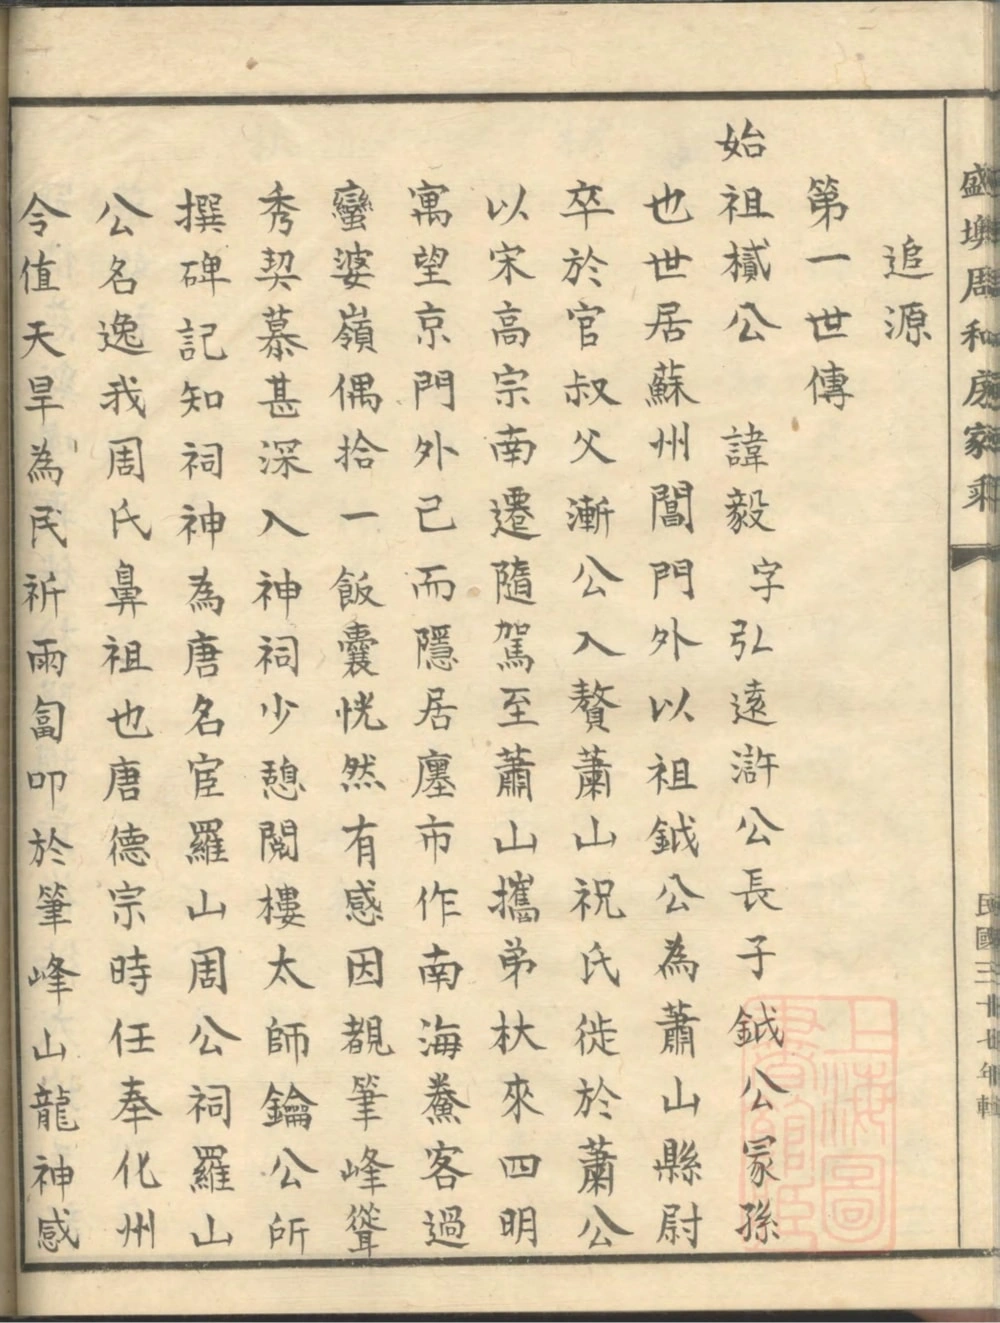 盛墺周和房家乘
民國三十七年輯
追源
第一世傳
始祖檟公 諱毅字弘遠滸公長子鉞公冡孫
也世居蘇州閶門外以祖鉞公為蕭山縣尉
卒於官叔父漸公入贅蕭山祝氏徙於蕭公
以宋高宗南遷隨駕至蕭山攜弟杕來四明
寓望京門外已而隱居廛市作南海鰲客過
蠻婆嶺偶拾一飯囊恍然有感因覩筆峰聳
秀契慕甚深入神祠少憩閱樓太師鑰公所
撰碑記知祠神為唐名宦羅山周公祠羅山
公名逸我周氏鼻祖也唐德宗時任奉化州
令值天旱為民祈雨匐叩於筆峰山龍神感
上海圖書館藏